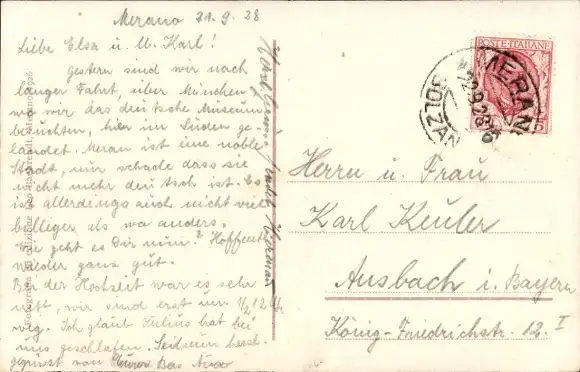 Merano 21.9.28
Liebe Elsa u. M. Karl!
Gestern sind wir nach
langer Fahrt, über München
wo wir das deutsche Museum
besuchten, hier im Süden ge-
landet. Meran ist eine noble
Stadt, nur schade dass sie
nicht mehr deutsch ist. Es
ist allerdings auch nicht viel
billiger als wo anders.
Wie geht es Dir nun? Hoffentl.
wieder ganz gut.
Bei der Hochzeit war es sehr
nett, wir sind erst um 1/2 12 Uhr
weg. Ich glaub Julius hat bei
uns geschlafen. Seid nun herzl.
gegrüsst von
POSTE ITALIANE
MERANO
BOLZANO
22.9.28
Herrn u. Frau
Karl Keuler
Ansbach i. Bayern
König-Friedrichstr. 12 I